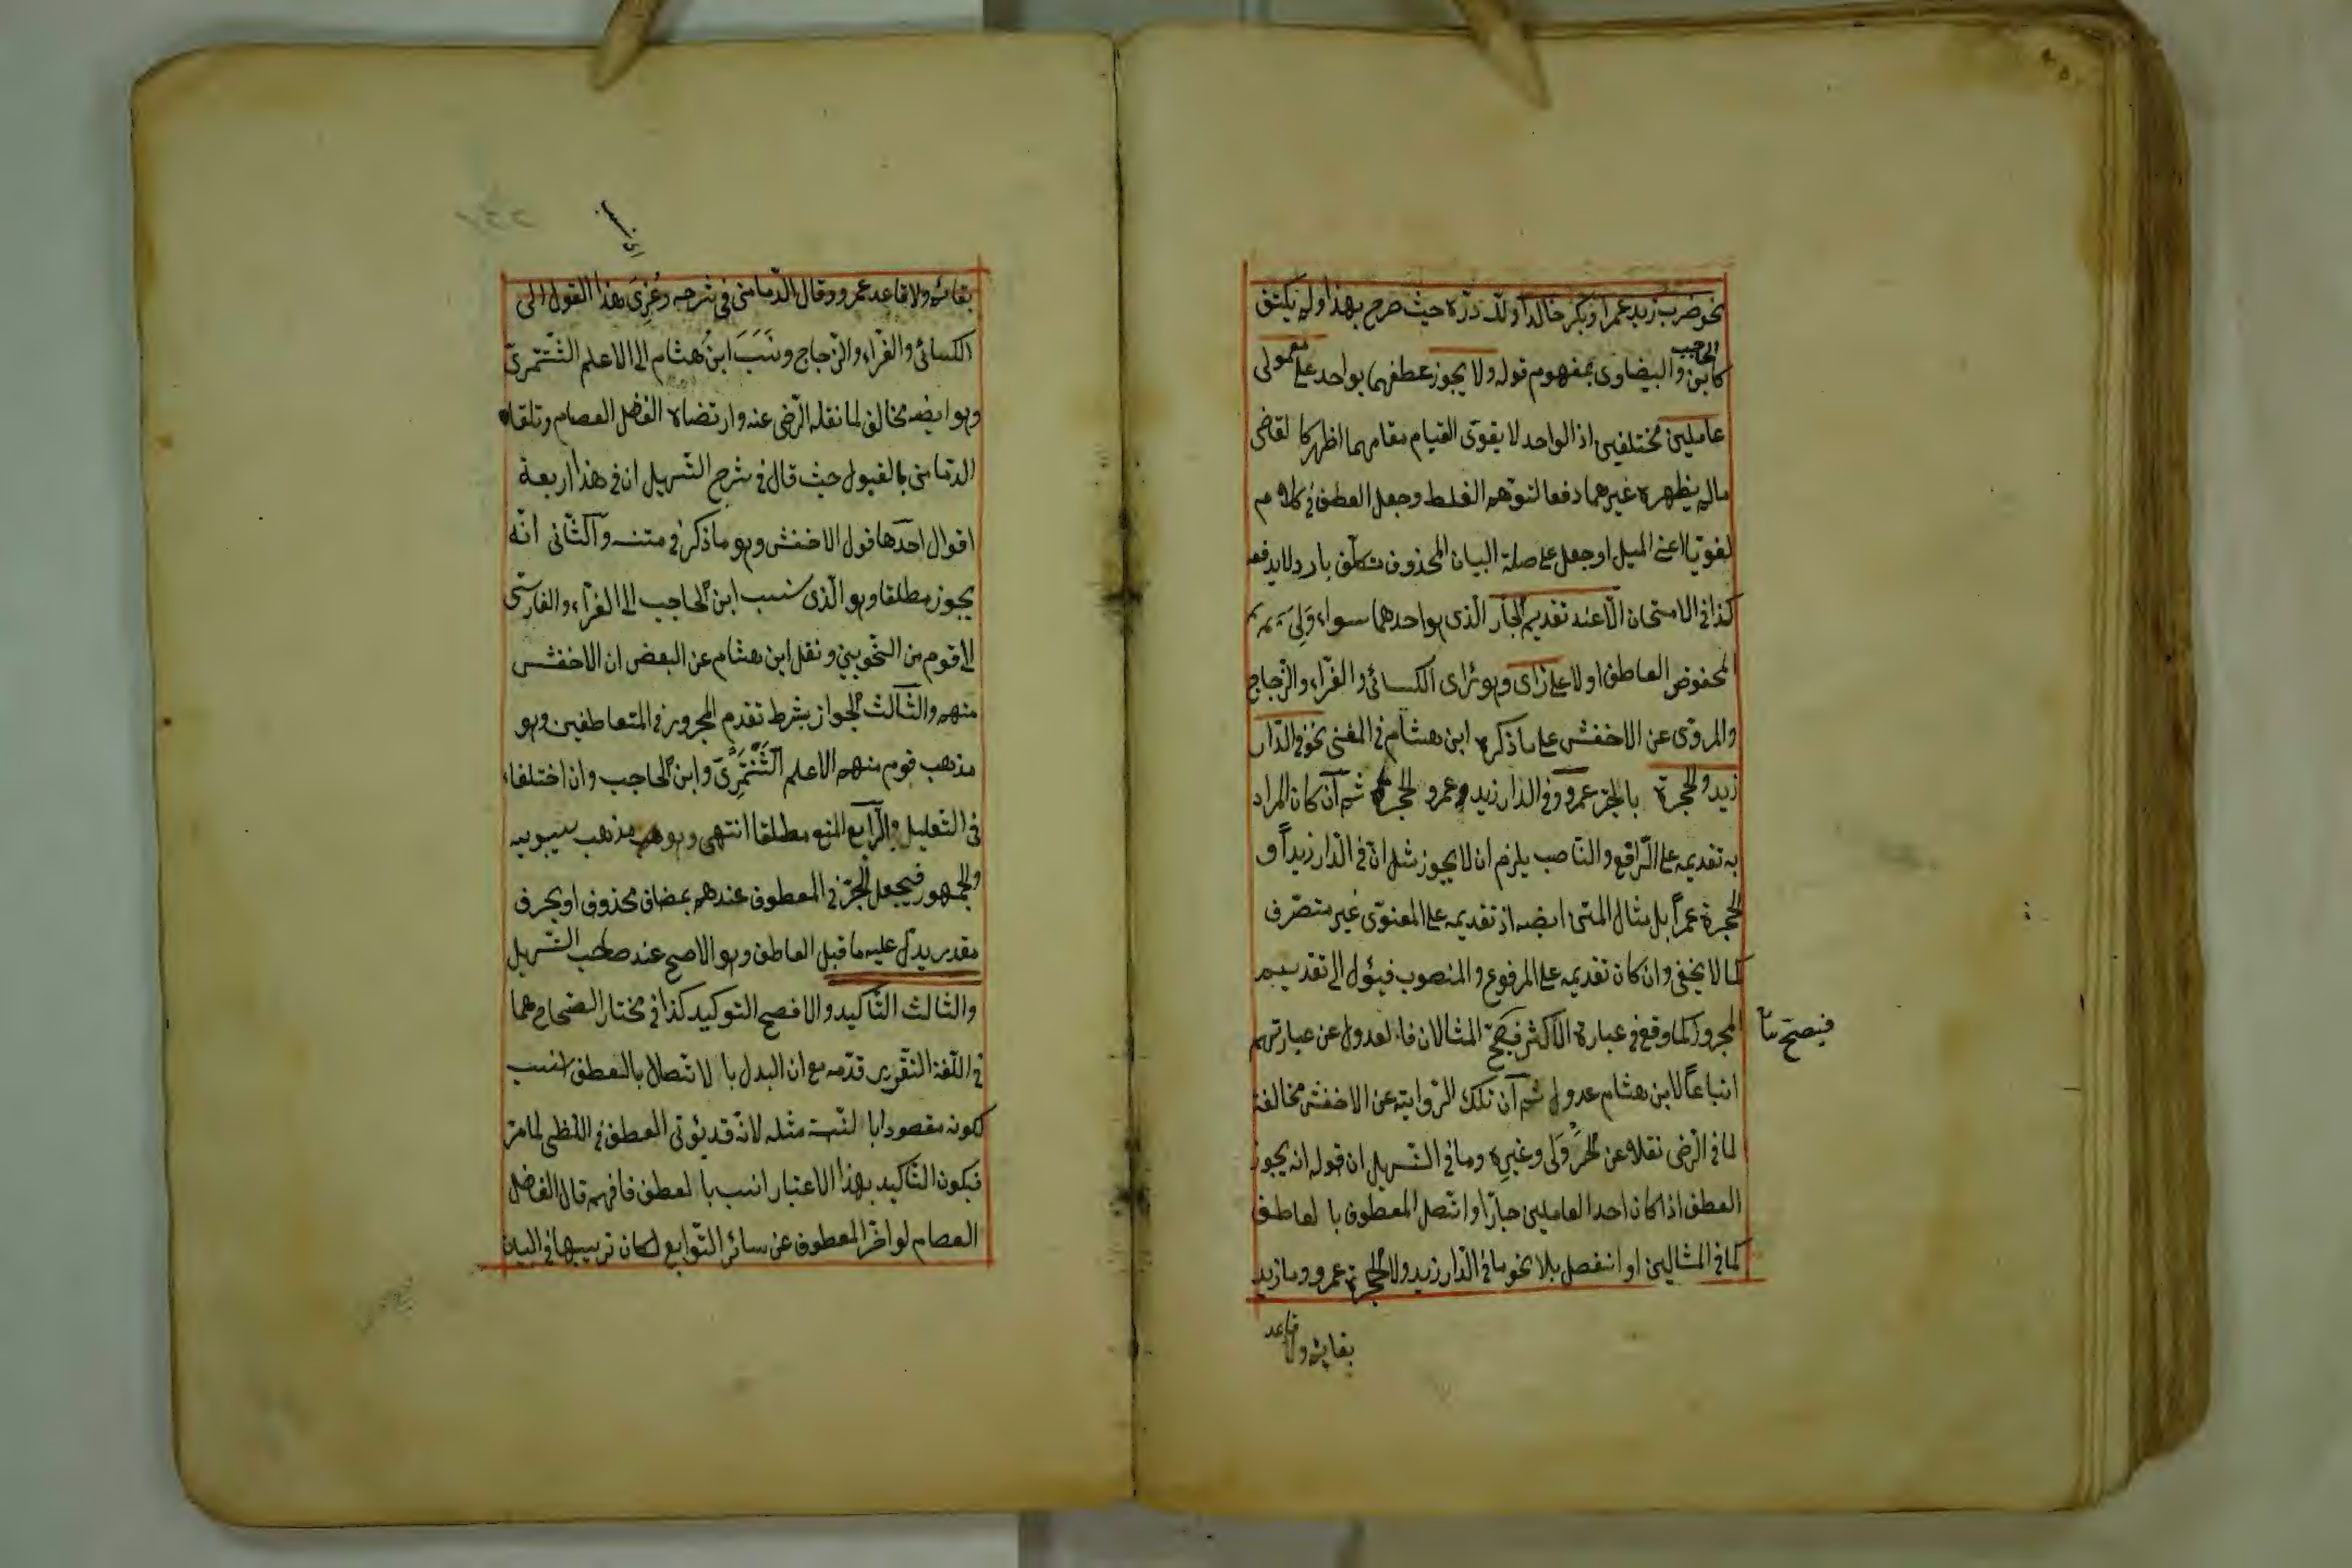 نحو ضرب زيد عمرا وبكر خالدا ولله درّه حيث صرح بهذا ولم يكتف
كابن الحاجب والبيضاوى بمفهوم قوله ولا يجوز عطفهما بواحد على معمولى
عاملين مختلفين اذ الواحد لا يقوى القيام مقامهما اظهر كالقاضى
مالم يظهره غيرهما دفعا لتوهم الغلط وجعل العطف فى كلام
لغويا اعنى الميل او جعل على صلة البيان المحذوف تكلف بارد لا يدفعه
كذا فى الامتحان الّا عند تقديم الجارّ الّذى هو احدهما سواء ولى
المخفوض العاطف او لا على رأى وهو رأى الكسائى والفرّاء والزّجاج
والمروىّ عن الاخفش على ما ذكره ابن هشام فى المغنى نحو فى الدّار
زيد والحجرة بالجرّ عمرو وفى الدار زيد وعمرو الحجرة ثم ان كان المراد
به تقديمه على الرّافع والنّاصب يلزم ان لا يجوز مثل انّ فى الدّار زيداً و
الحجرة عمراً بل مثال المتن ايضه اذ تقديمه على المعنوىّ غير متصرّف
كما لا يخفى وان كان تقديمه على المرفوع والمنصوب فيئول الى تقديم
المجرور كما وقع فى عبارة الاكثر فيصحّ المثالان فالعدول عن عبارتهم
فيصحّ
اتباعاً لابن هشام عدول ثم ان تلك الرّواية عن الاخفش مخالفة
لما فى الرّضى نقلا عن الجزولى وغيره وما فى التّسهيل ان قوله انه يجوز
العطف اذا كان احد العاملين جارّا واتّصل المعطوف بالعاطف
كما فى المثالين او انفصل بلا نحو ما فى الدّار زيد ولا الحجرة عمرو وما زيد
بقائم ولا قاعد
بقائم ولا قاعد عمرو وقال الدّمامنى فى شرحه وعُزِىَ هذا القول الى
الكسائى والفرّاء والزّجاج ونَسَبَ ابنُ هشام الى الاعلم الشّنتمرىّ
وهو ايضه مخالف لما نقله الرّضى عنه وارتضاه الفاضل العصام وتلقاه
الدّمامنى بالقبول حيث قال فى شرح التّسهيل ان فى هذا اربعة
اقوال احدها قول الاخفش وهو ما ذكر فى متنه والثّانى انّه
يجوز مطلقا وهو الّذى نسب ابن الحاجب الى الفرّاء والفارسّى
الى قوم من النّحويين ونقل ابن هشام عن البعض ان الاخفش
منهم والثّالث الجواز بشرط تقدم المجرور فى المتعاطفين وهو
مذهب قوم منهم الاعلم الشَّنْتَمَرِىّ وابن الحاجب وان اختلفا
فى التّعليل والرّابع المنع مطلقا انتهى وهو مذهب سيبويه
والجمهور فيجعل الجرّ فى المعطوف عندهم بمضاف محذوف او بحرف
مقدر يدل عليه ما قبل العاطف وهو الاصح عند صاحب التّسهيل
والثالث التّاكيد والافصح التوكيد كذا فى مختار الصّحاح هما
فى اللّغة التّقرير قدّمه مع ان البدل بالاتّصال بالعطف انسب
لكونه مقصودا بالنّسبة مثله لانّه قد يؤتى العطف فى اللّفظى لما مرّ
فيكون التّاكيد بهذا الاعتبار انسب بالعطف فافهم قال الفاضل
العصام لو اخّر المعطوف عن سائر التّوابع لكان ترتيبها فى البين